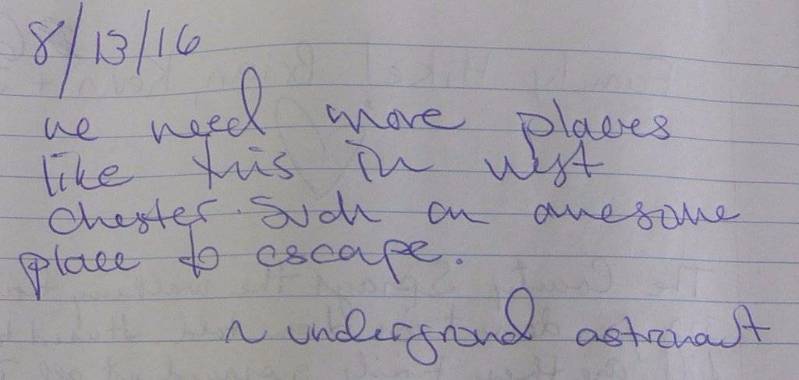 8/13/16
we need more places
like this in west
chester. Such an awesome
place to escape.
~ undergrond astronaut